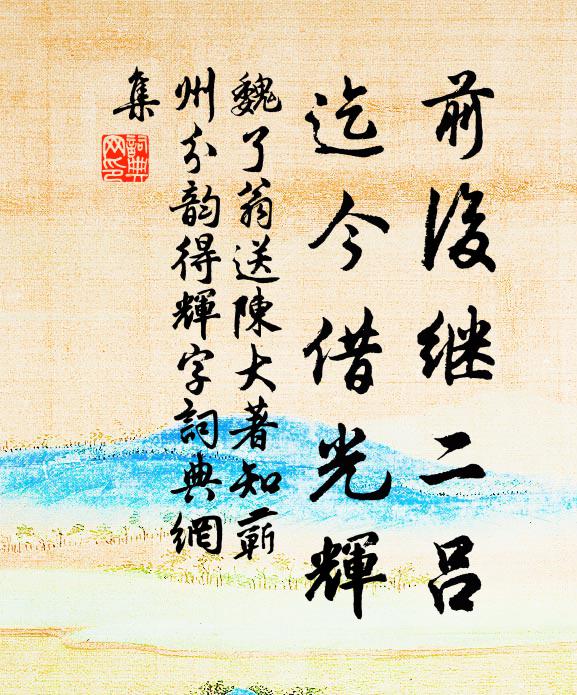 前後继二呂
迄今借光輝
魏了翁送陳大著知蘄
州分韵得輝字詞典網
集
詞典
网印